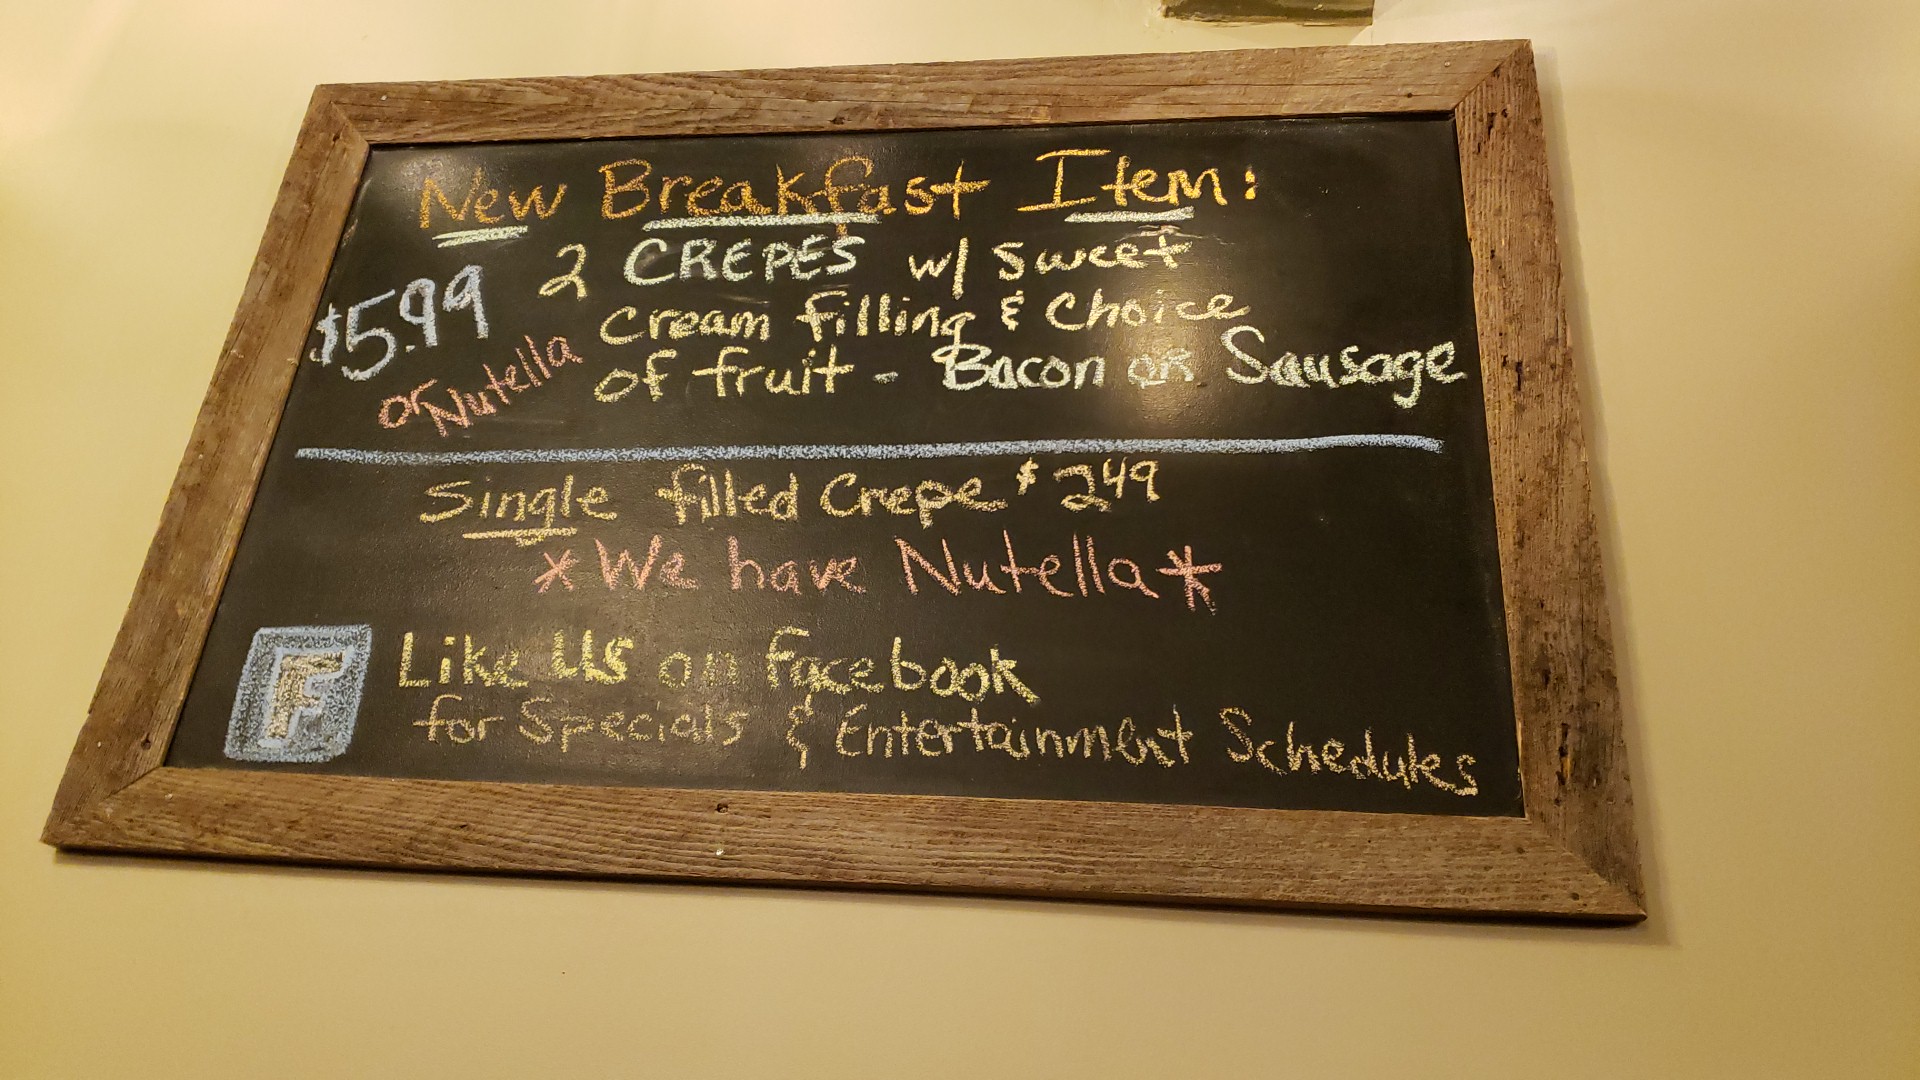 New Breakfast Item:
$5.99 2 CREPES w/ Sweet
Cream filling & Choice
or Nutella of fruit - Bacon or Sausage
Single filled Crepe $2.49
*We have Nutella*
F Like Us on Facebook
for Specials & Entertainment Schedules